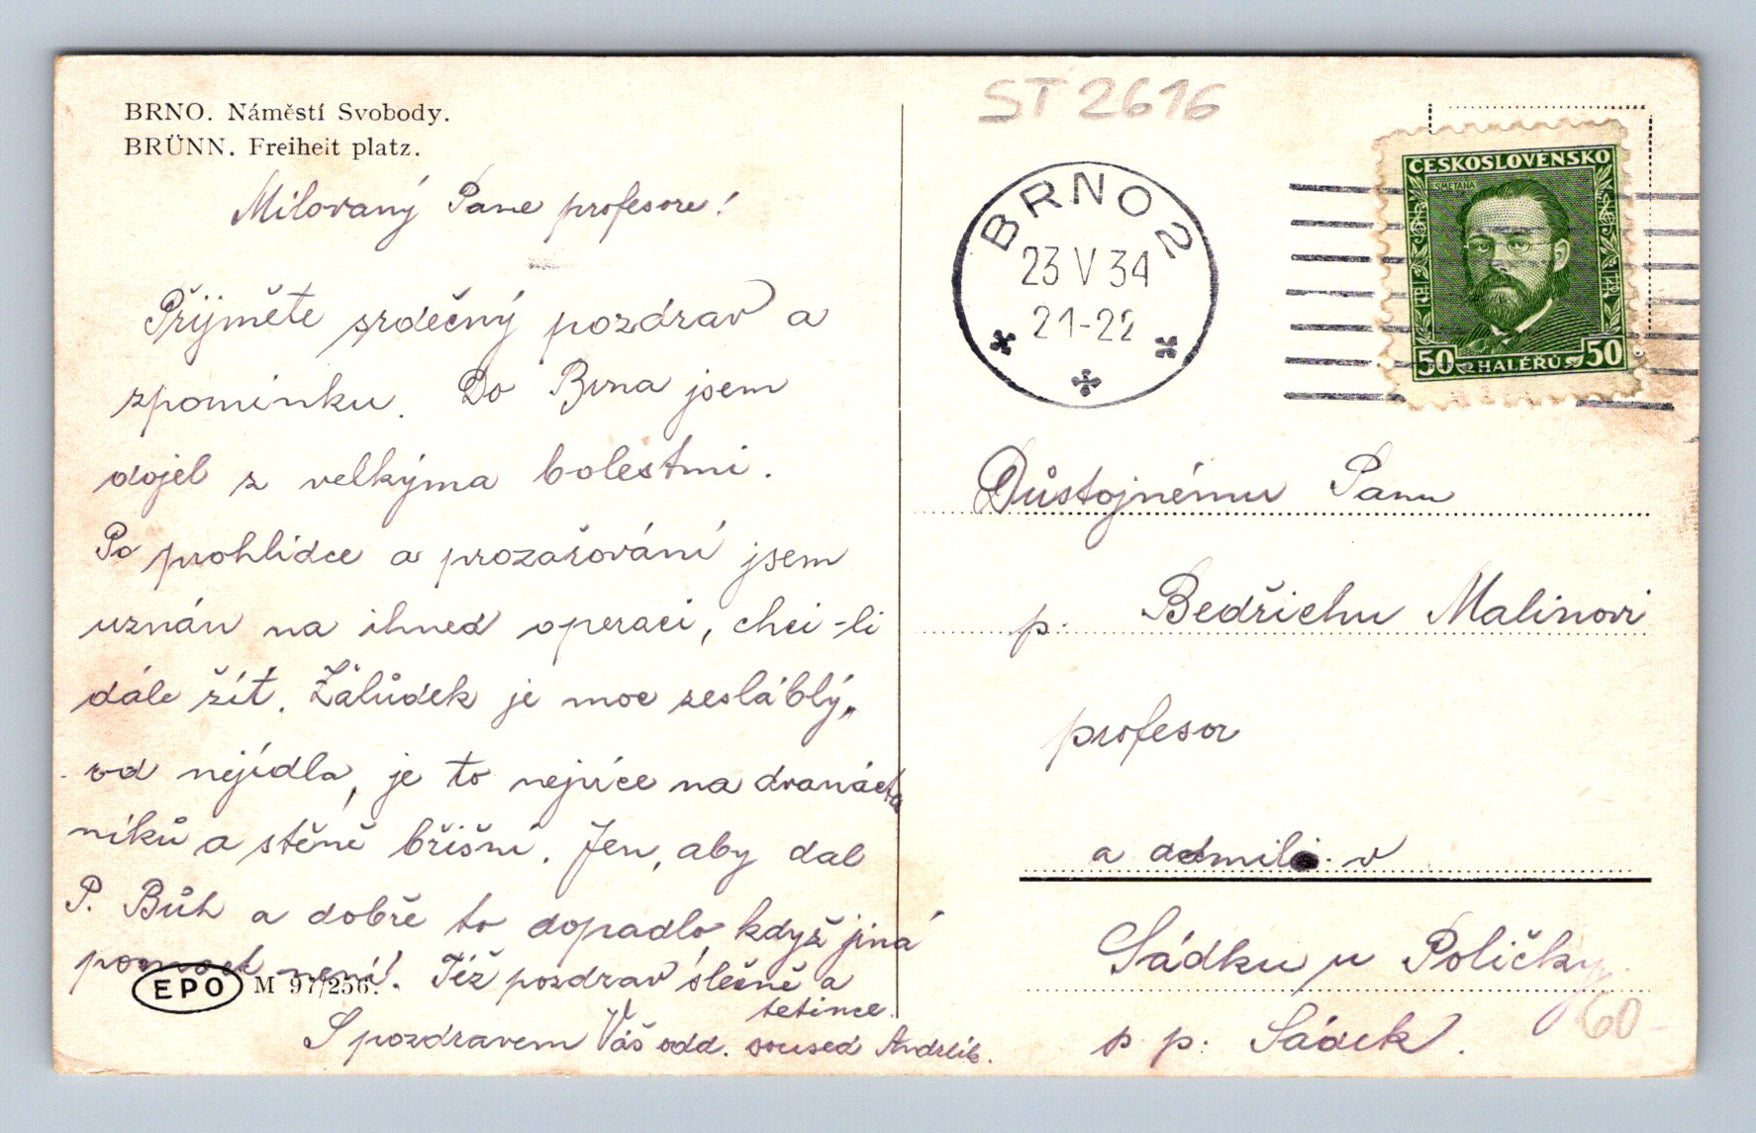 BRNO. Náměstí Svobody.
BRÜNN. Freiheit platz.
Milovaný Pane profesore!
Přijměte srdečný pozdrav a
zpomínku. Do Brna jsem
dojel z velkýma bolestmi.
Po prohlídce a prozařování jsem
uznán na ihned operaci, chci-li
dále žít. Žalůdek je moc zesláblý,
od nejídla, je to nejvíce na dvanácta
níků a stěně břišní. Jen, aby dal
P. Bůh a dobře to dopadlo když jiná
pomoct není! Též pozdrav slečně a
tetince.
S pozdravem Váš odd. soused Andrlík.
EPO M 97/256.
ST 2616
BRNO 2
23 V 34
21-22
ČESKOSLOVENSKO
SMETANA
50 HALÉŘŮ 50
Důstojnému Panu
p. Bedřichu Malinovi
profesor
a v
Sádku u Poličky
p. p. Sádek.
60-